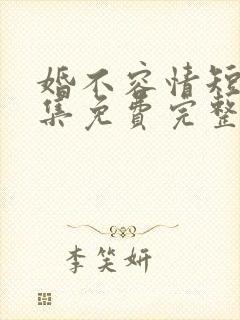 婚不容情短
集免费完整
李笑妍